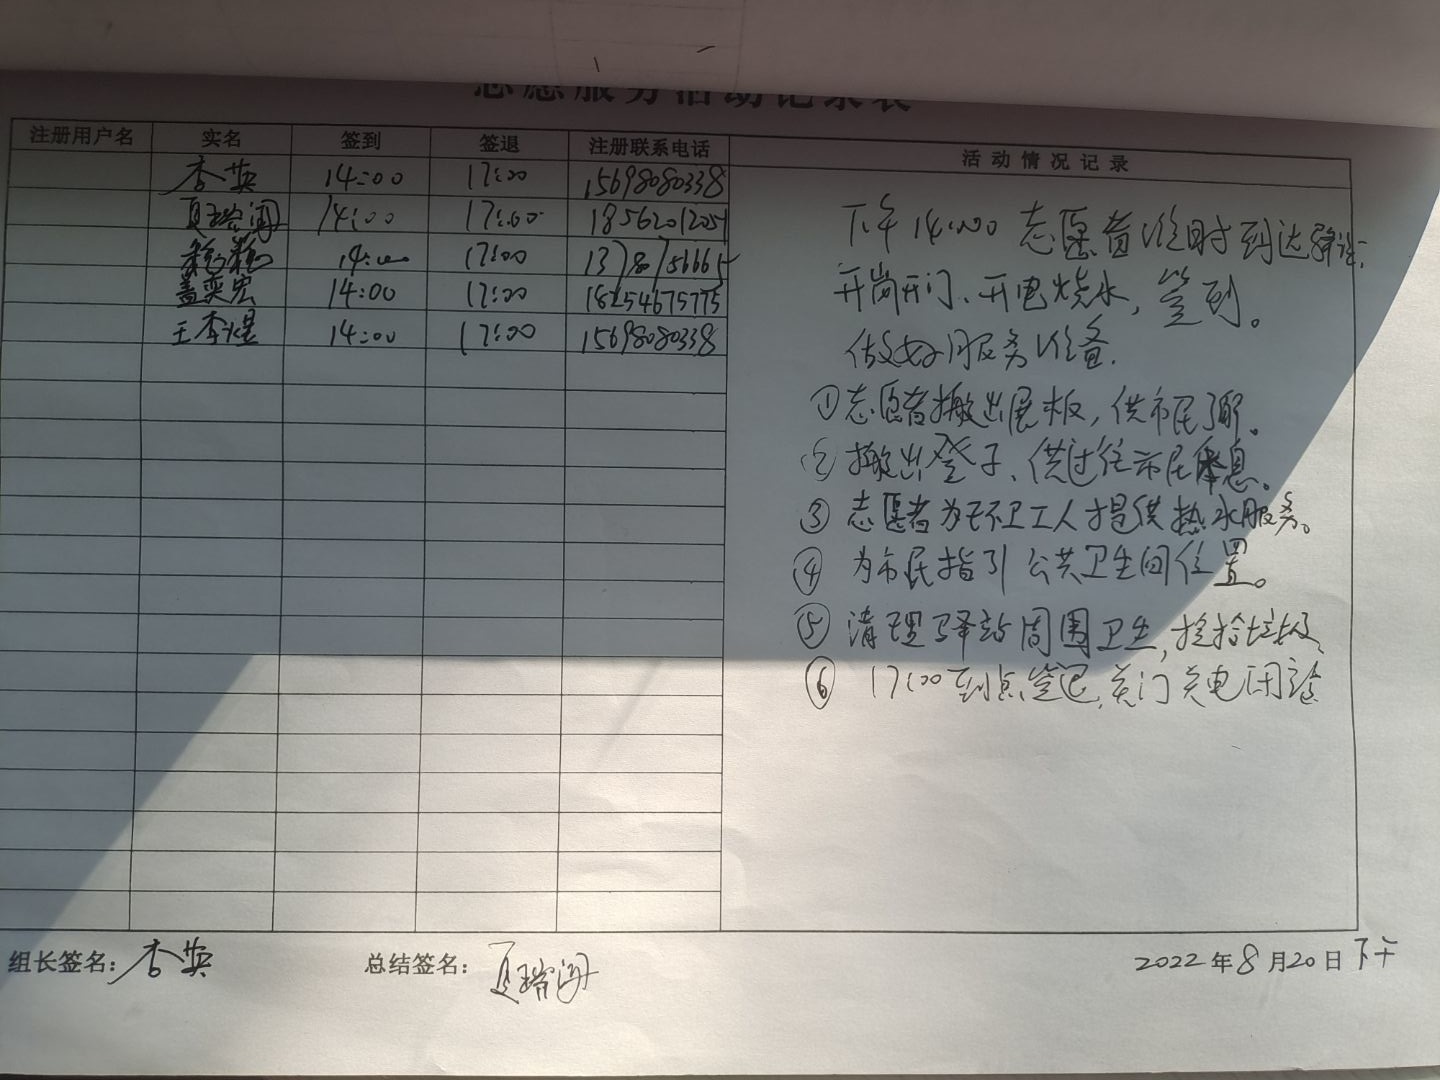 志愿服务活动记录表
注册用户名 实名 签到 签退 注册联系电话 活动情况记录
李英 14:00 17:00 15698080338
夏瑞阁 14:00 17:00 1856201205
14:00 17:00 13780756665
盖奕宏 14:00 17:00 18254675775
王李煜 14:00 17:00 15698080338
下午14:00志愿者准时到达驿站,
开岗开门、开电烧水,签到。
做好服务准备.
①志愿者搬出展板,供市民了解。
② 搬出凳子、供过往市民休息。
③ 志愿者为环卫工人提供热水服务。
④ 为市民指引公共卫生间位置。
⑤ 清理驿站周围卫生,捡拾垃圾
⑥ 17:00到点签退,关门关电闭站
组长签名:李英 总结签名:夏瑞阁 2022年8月20日下午